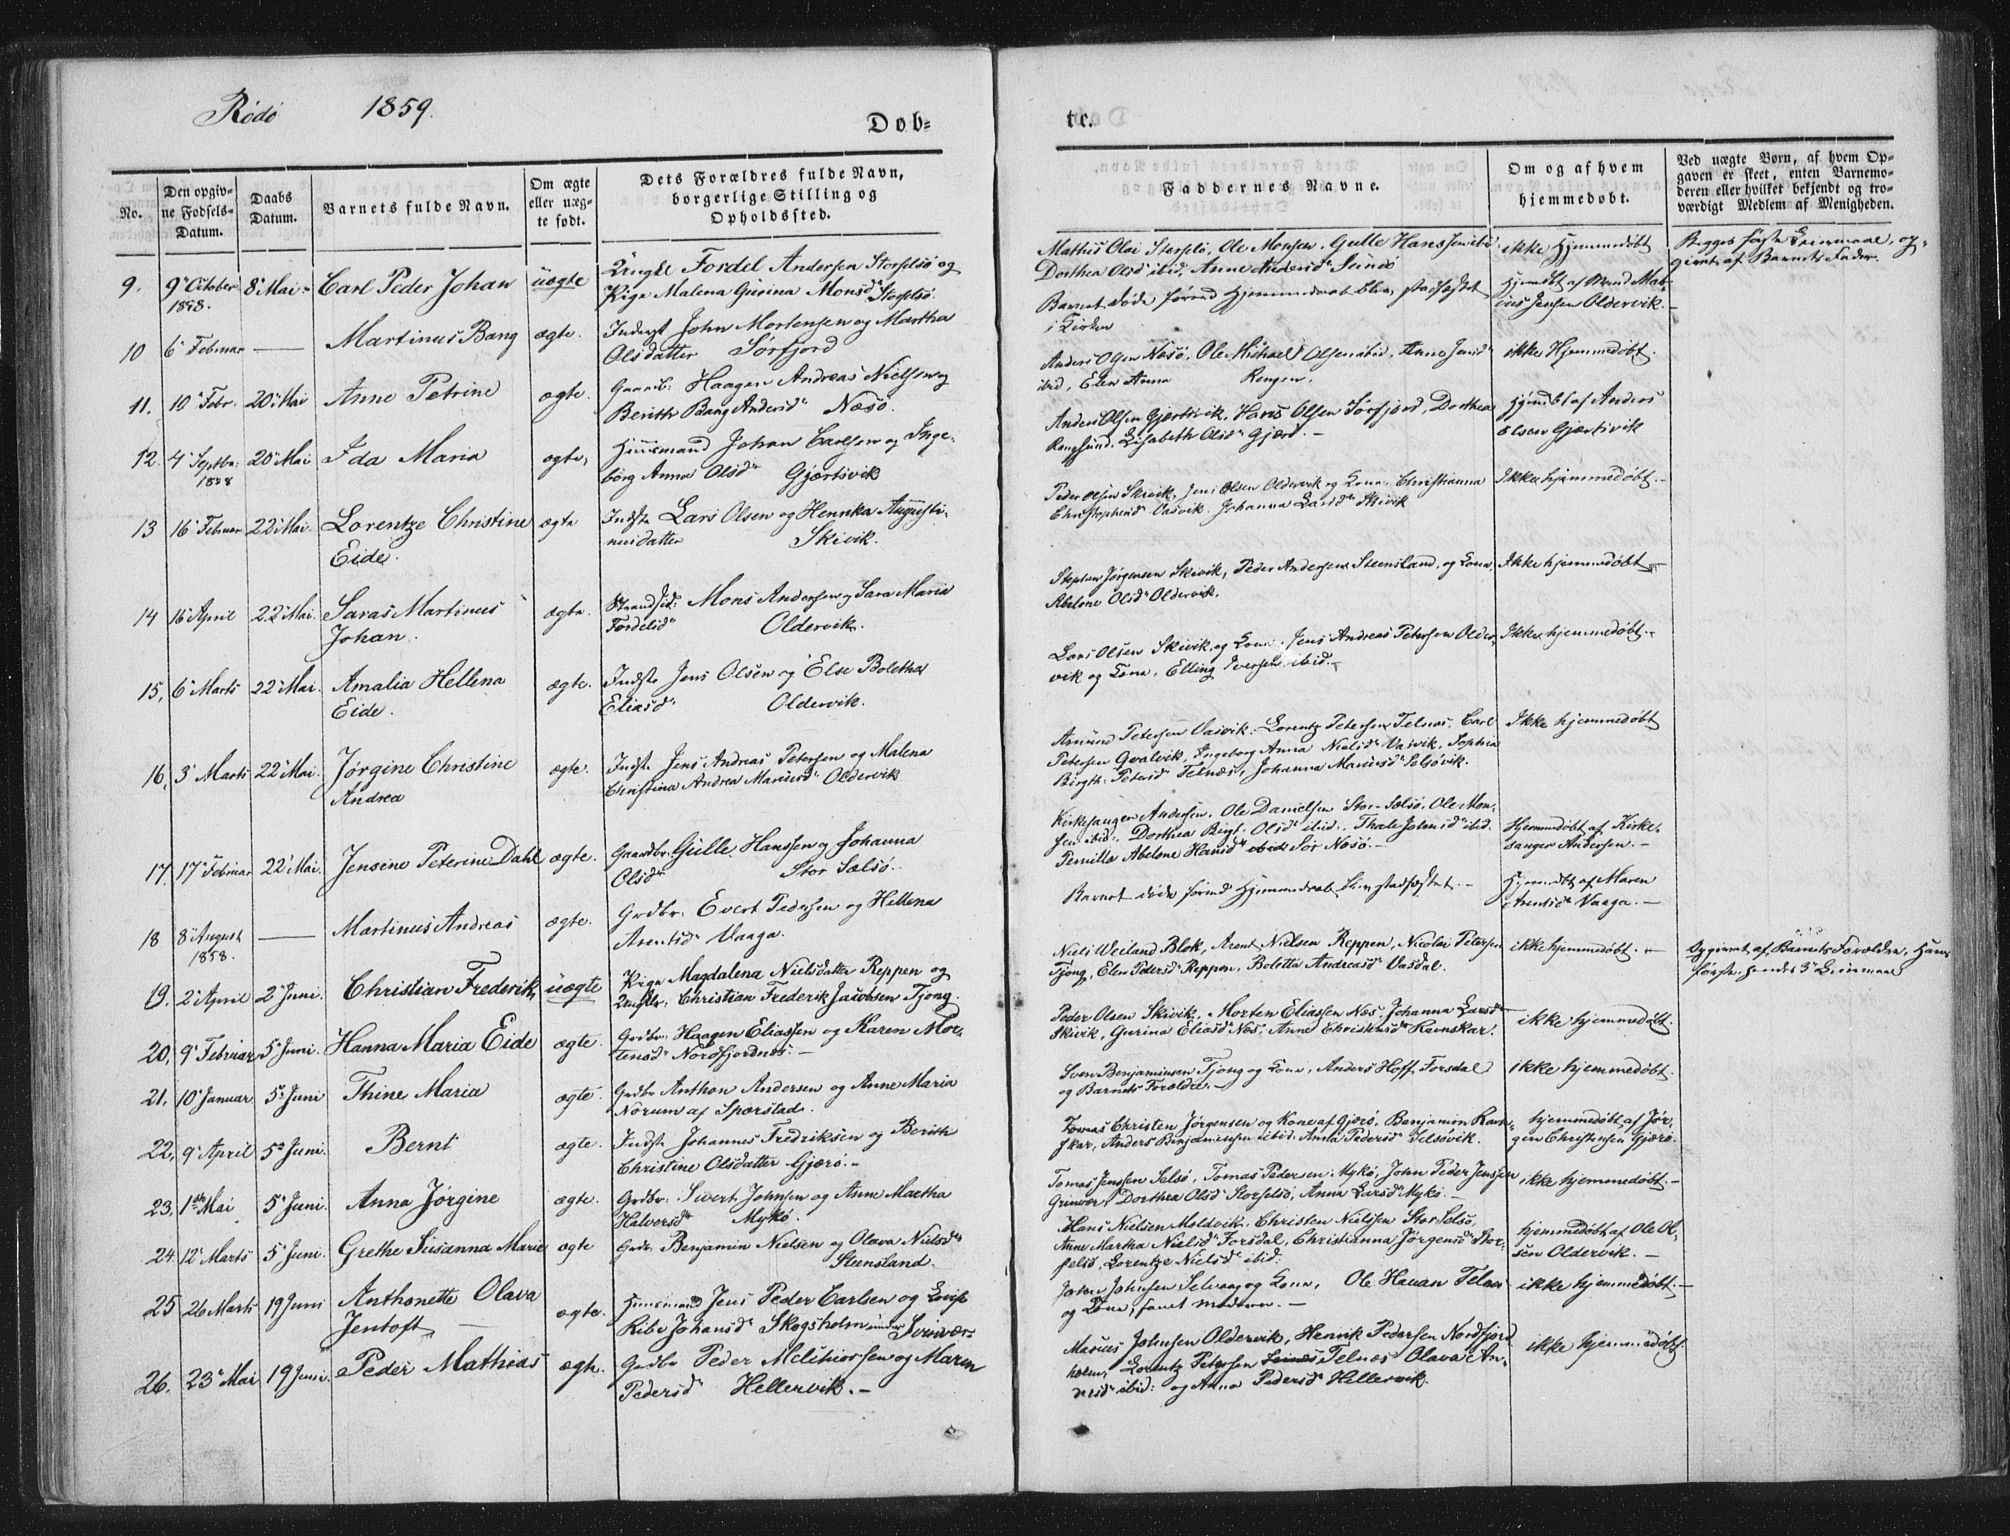 Rødø 1859.
Døb-
te.
No.
Den opgiv-
ne Fødsels-
Datum.
Daabs
Datum.
Barnets fulde Navn.
Om ægte
eller uæg-
te født.
Dets Forældres fulde Navn,
borgerlige Stilling og
Opholdssted.
Faddernes Navne.
Om og af hvem
hjemmedøbt.
Ved uægte Børn, af hvem Op-
gaven er skeet, enten Barnemo-
deren eller hvilket bekjendt og tro-
værdigt Medlem af Menigheden.
9. 9 October 8 Mai Carl Peder Johan uægte Ungkl Fordel Andersen Storselsø og
1858. Pige Malena Gurina Monsd Storselsø.
Mathis Olai Storselsø, Ole Monsen, Gulle Hanssen ibid
Dorthea Olsd ibid, Anne
ikke Hjemmedøbt
Begges første Leiermaal, op-
givet af Barnets Fader.
10 6 Februar — Martinus Bang ægte. Inderst John Mortensen og Martha
Olsdatter Sørfjord
Barnet døde førend Hjemmedaab blev stadfæstet
i Kirken
Hjemdøbt af
Jensen Oldervik.
11. 10 Febr. 20 Mai Anne Petrine ægte. Gaardb: Haagen Andreas Nielsen og
Berith Bang Andersd Næsø.
Anders Olsen Næsø, Ole Michael Olsen ibid, Anne
ibid, Elen Anna Rengen.
ikke Hjemmedøbt.
12. 4 Septbr. 20 Mai Ida Maria ægte. Huusmand Johan Carlsen og Inge-
1858 borg Anna Olsd Gjærtsvik
Anders Olsen Gjærtsvik, Hans Olsen Sørfjord, Dorthea
Rangsund, Elisabeth Olsd Gjærø. —
Hjemdøbt af Anders
Olsen Gjærtsvik
13 16 Februar 22 Mai. Lorentze Christine ægte Indste Lars Olsen og Hennka Augusti-
Eide. nusdatter Skivik.
Peder Olsen Skivik, Jens Olsen Oldervik og Kona, Christianna
Christophersd Vasvik, Johanna Larsd Skivik
Ikke hjemmedøbt. —
14 16 April 22 Mai. Saras Martinus ægte. Strandsid: Mons Andersen og Sara Maria
Johan. Fordelsd Oldervik.
Stephen Jørgensen Skivik, Peder Andersen Steensland, og Kona
Abelone Olsd Oldervik.
Ikke hjemmedøbt
15. 6 Marts 22 Mai. Amalia Hellena ægte. Indste Jens Olsen og Else Boletha
Eide. Eliasd Oldervik.
Lars Olsen Skivik og Kona. Jens Andreas Petersen Older-
vik og Kona, Elling Iversen ibid. —
Ikke hjemmedøbt.
16. 3 Marts 22 Mai. Jørgine Christine ægte. Indste Jens Andreas Petersen og Malena
Andrea Christina Andrea Mariusd Oldervik
Amund Petersen Vasvik, Lorentz Petersen Telnæs, Carl
Petersen Qvalvik, Ingeborg Anna Nielsd Vasvik, Sophia
Birgth. Petersd Telnæs, Johanna Mariusd Selsøvik.
Ikke hjemmedøbt
17. 17 Februar 22 Mai. Jensine Peterine Dahl ægte. Gaardbr. Gulle Hanssen og Johanna
Olsd Stor Sælsø.
Kirkesanger Andersen, Ole Danielsen Stor-Sælsø, Ole Mon-
sen ibid., Dorthea Birgt. Olsd ibid. Thale Johnsd ibid.
Pernille Abelone Hansd Sør Næsø. —
Hjemmedøbt af Kirke-
sanger Andersen. —
18 8 August — Martinus Andreas ægte. Grdbr: Evert Pedersen og Hellena
1858. Arentsd Vaaga.
Barnet døde førend Hjemmedaab blev stadfæstet. —
Hjemmdøbt af Maren
Arentsd Vaaga. —
19. 2 April 2 Juni. Christian Frederik uægte Pige Magdalena Nielsdatter Reppen og
Ungkr. Christian Frederik Jacobsen Tjong.
Niels Weiland Blok, Arent Nielsen Reppen, Nicolai Petersen
Tjong, Elen Pedersd Reppen, Boletta Andreasd Vasdal.
ikke hjemmedøbt. —
Opgivet af Barnets Forældre, Hans
første, hendes 3 Leiermaal
20. 9 Februar 5 Juni. Hanna Maria Eide ægte. Grdbr: Haagen Eliassen og Karen Mor-
tensd Nordfjordnæs. —
Peder Olsen Skivik, Morten Eliassen Næs, Johanna Larsd
Skivik, Gurina Eliasd Næs, Anne Christensd Ramskar.
ikke hjemmedøbt.
21. 10 Januar 5 Juni Thine Maria ægte. Grdbr Anthon Andersen og Anne Maria
Norum af Spærstad.
Sven Benjaminsen Tjong og Kona, Anders Hoff Forsdal
og Barnets Forældre. —
ikke hjemmedøbt.
22. 9 April 5 Juni. Bernt ægte. Indste Johannes Fredriksen og Berith
Christine Olsdatter Gjærø. —
Tomas Christen Jørgensen og Kone af Gjærø, Benjamin Ram-
skar, Anders Benjaminsen ibid. Anna Pedersd Selsøvik.
hjemmedøbt af Jør-
gen Christensen Gjærø.
23. 1ste Mai 5 Juni. Anna Jørgine ægte. Grdbr. Sivert Johnsen og Anne Martha
Halvorsd Mykø.
Tomas Jenssen Selsø, Tomas Pedersen Mykø, John Peder Jenssen
Grinvær, Dorthea Olsd Storselsø, Anna Larsd Mykø. —
ikke hjemmedøbt. —
24. 12 Marts 5 Juni. Grethe Susanna Marie ægte Grdr. Benjamin Nielsen og Olava Nielsd
Steensland.
Hans Nielsen Moldvik, Christen Nielssen Stor Selsø,
Anne Martha Nielsd Forsdal, Christianna Jørgensd Stor-
selsø, Lorentze Nielsd ibid.
hjemmedøbt af Ole Ol-
sen Oldervik. —
25 26 Marts 19 Juni Anthonette Olava ægte. Huusmand Jens Peder Carlsen og Lovise
Jentoft — Ribe Johansd Skogsholm under Svinvær.
Johan Johnsen Selvaag og Kona, Ole Havan Telnæs
og Kona, samt Moderen. —
ikke hjemmedøbt. —
26. 23 Mai 19 Juni. Peder Mathias ægte. Grdbr Peder Melchiorsen og Maren
Pedersd Hellervik. —
Marius Johnsen Oldervik, Henrik Pedersen Nordfjord
holm, Lorentz Petersen Telnæs Olava An-
dersd ibid: og Anna Pedersd Hellervik.
ikke hjemmedøbt.